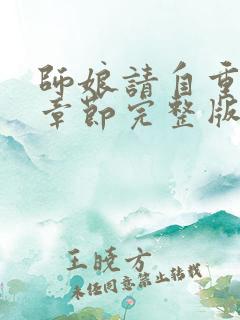 師娘請自重
章節完整版
王曉方
未經同意禁止轉載